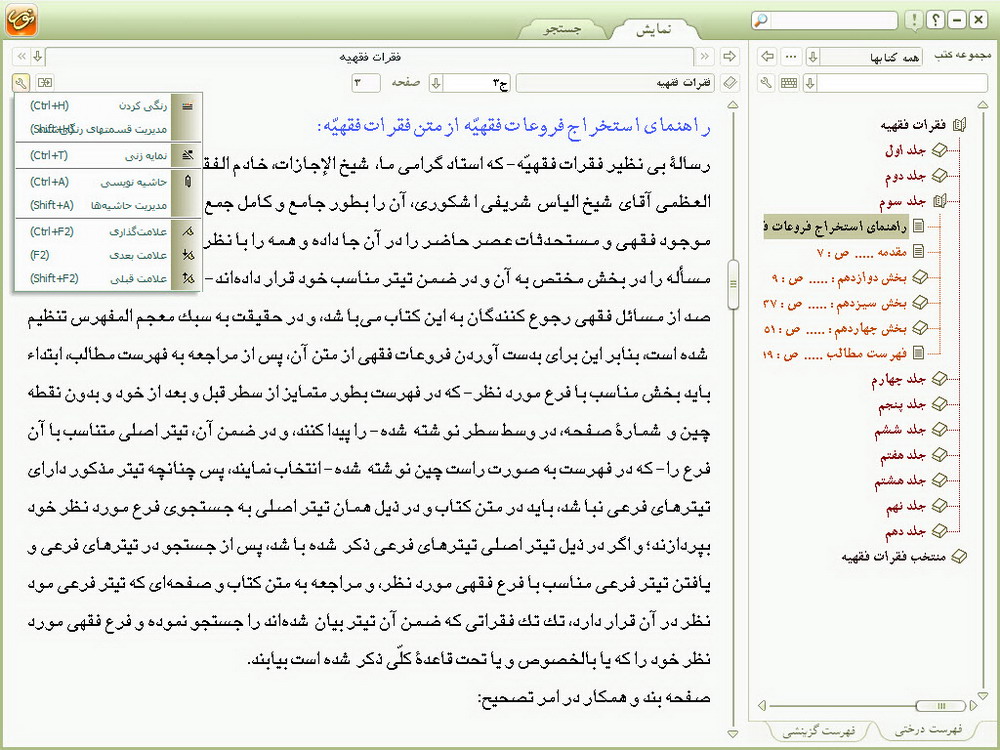 نمایش
جستجو
مجموعه کتب
همه کتابها
فقرات فقهیه
جلد اول
جلد دوم
جلد سوم
راهنمای استخراج فروعات ف
مقدمه ..... ص : ۷
بخش دوازدهم : ..... ص : ۹
بخش سیزدهم : ..... ص : ۳۷
بخش چهاردهم : ..... ص : ۵۱
فهرست مطالب ..... ص : ۱۹
جلد چهارم
جلد پنجم
جلد ششم
جلد هفتم
جلد هشتم
جلد نهم
جلد دهم
منتخب فقرات فقهیه
فهرست درختی
فهرست گزینشی
فقرات فقهیه
فقرات فقهیه
ج۳
صفحه
۳
رنگی کردن (Ctrl+H)
مدیریت قسمتهای رنگی
نمایه زنی (Ctrl+T)
حاشیه نویسی (Ctrl+A)
مدیریت حاشیه‌ها (Shift+A)
علامت‌گذاری (Ctrl+F2)
علامت بعدی (F2)
علامت قبلی (Shift+F2)
راهنمای استخراج فروعات فقهیّه از متن فقرات فقهیّه:
رسالۀ بی نظیر فقرات فقهیّه- که استاد گرامی ما، شیخ الإجازات، خادم الفق
العظمی آقای شیخ الیاس شریفی اشکوری، آن را بطور جامع و کامل جمع
موجود فقهی و مستحدثات عصر حاضر را در آن جا داده و همه را با نظر
مسأله را در بخش مختص به آن و در ضمن تیتر مناسب خود قرار داده‌اند-
صد از مسائل فقهی رجوع کنندگان به این کتاب می‌باشد، و در حقیقت به سبك معجم المفهرس تنظیم
شده است، بنابر این برای بدست آوردن فروعات فقهی از متن آن، پس از مراجعه به فهرست مطالب، ابتداء
باید بخش مناسب با فرع مورد نظر- که در فهرست بطور متمایز از سطر قبل و بعد از خود و بدون نقطه
چین و شمارۀ صفحه، در وسط سطر نوشته شده- را پیدا کنند، و در ضمن آن، تیتر اصلی متناسب با آن
فرع را- که در فهرست به صورت راست چین نوشته شده- انتخاب نمایند، پس چنانچه تیتر مذکور دارای
تیترهای فرعی نباشد، باید در متن کتاب و در ذیل همان تیتر اصلی به جستجوی فرع مورد نظر خود
بپردازند؛ و اگر در ذیل تیتر اصلی تیترهای فرعی ذکر شده باشد، پس از جستجو در تیترهای فرعی و
یافتن تیتر فرعی مناسب با فرع فقهی مورد نظر، و مراجعه به متن کتاب و صفحه‌ای که تیتر فرعی مود
نظر در آن قرار دارد، تك تك فقراتی که ضمن آن تیتر بیان شده‌اند را جستجو نموده و فرع فقهی مورد
نظر خود را که یا بالخصوص و یا تحت قاعدۀ کلّی ذکر شده است بیابند.
صفحه بند و همکار در امر تصحیح: